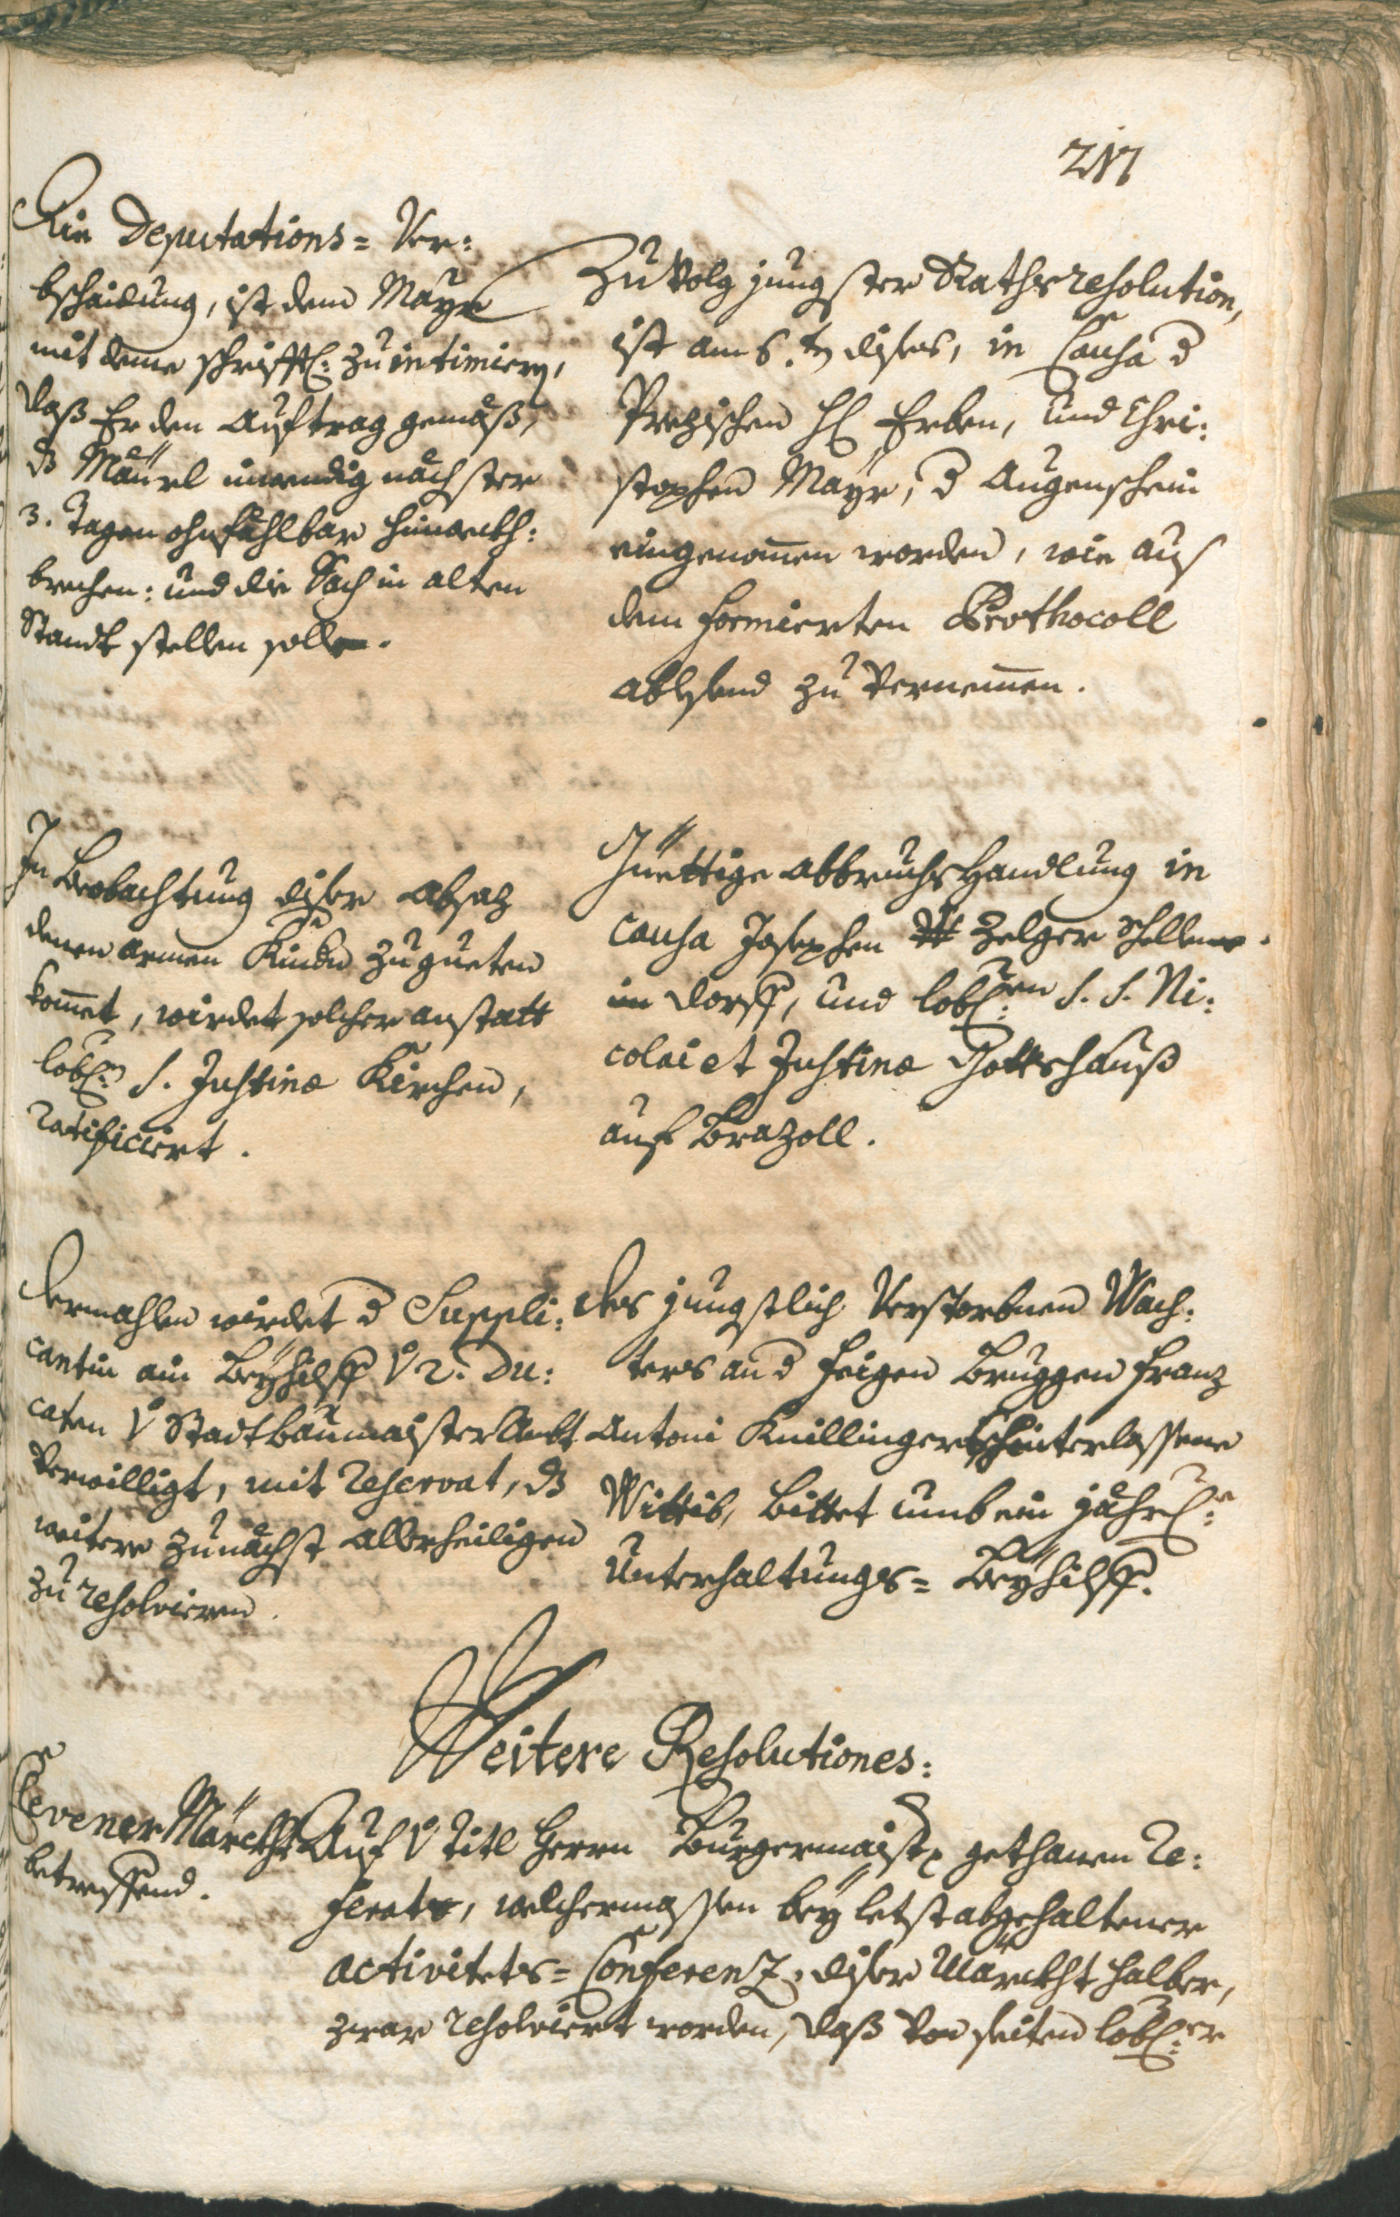 217
Die Deputations= Ver:
bschaidung, ist dem Mayr
mit deme schrifftl: zu intimiern,
daß Er den Auftrag gemäß,
dz Mäurl inwendig nächster
3. Tagen ohnfählbar hinweckh:
brechen: und die Sach in alten
Standt stellen solle.
Zu Volg jungster Rathsresolution,
ist am 6.tn dises, in Causa d
Prezischen hl Erben, und Chri:
stophen Mayr, d Augenschein
eingenomen worden, wie aus
dem formierten Prothocoll
ablesend zu Vernemmen.
In Beobachtung diser Absaz
denen armen Kindn zu gueten
komet, wirdet solcher anstatt
lobl:n S. Justinæ Kirchen,
ratificiert.
Güettige Abbruchs Handlung in
causa Josephen Zelger Schellener
im Dorff, und lobl:en S. S. Ni:
colai et Justinæ Gottshauß
auf Brazoll.
Dermahlen wirdet d Suppli:
cantin ain Beyhilff v 2. Du:
caten v Stadtbaumaister Ambt
Verwilligt, mit reservat, dz
weitere zu nächst Allerheiligen
zu resolvieren.
Des jungstlich Verstorbnen Wach:
ters an d Heigen Bruggen Franz
Antoni Knillinger hinterlassene
Wittib, bittet umb ein jährl:e
Unterhaltungs= Beyhilff.
Weitere Resolutiones:
Cevener Märckht
betreffend.
Auf v Titl Herrn Burgermaistr gethanen Re:
ferat, welchermassen bey letst abgehaltener
activitets= Conferenz, diser Märckht halber,
zwar resolviert worden, daß Von seiten lobl:er